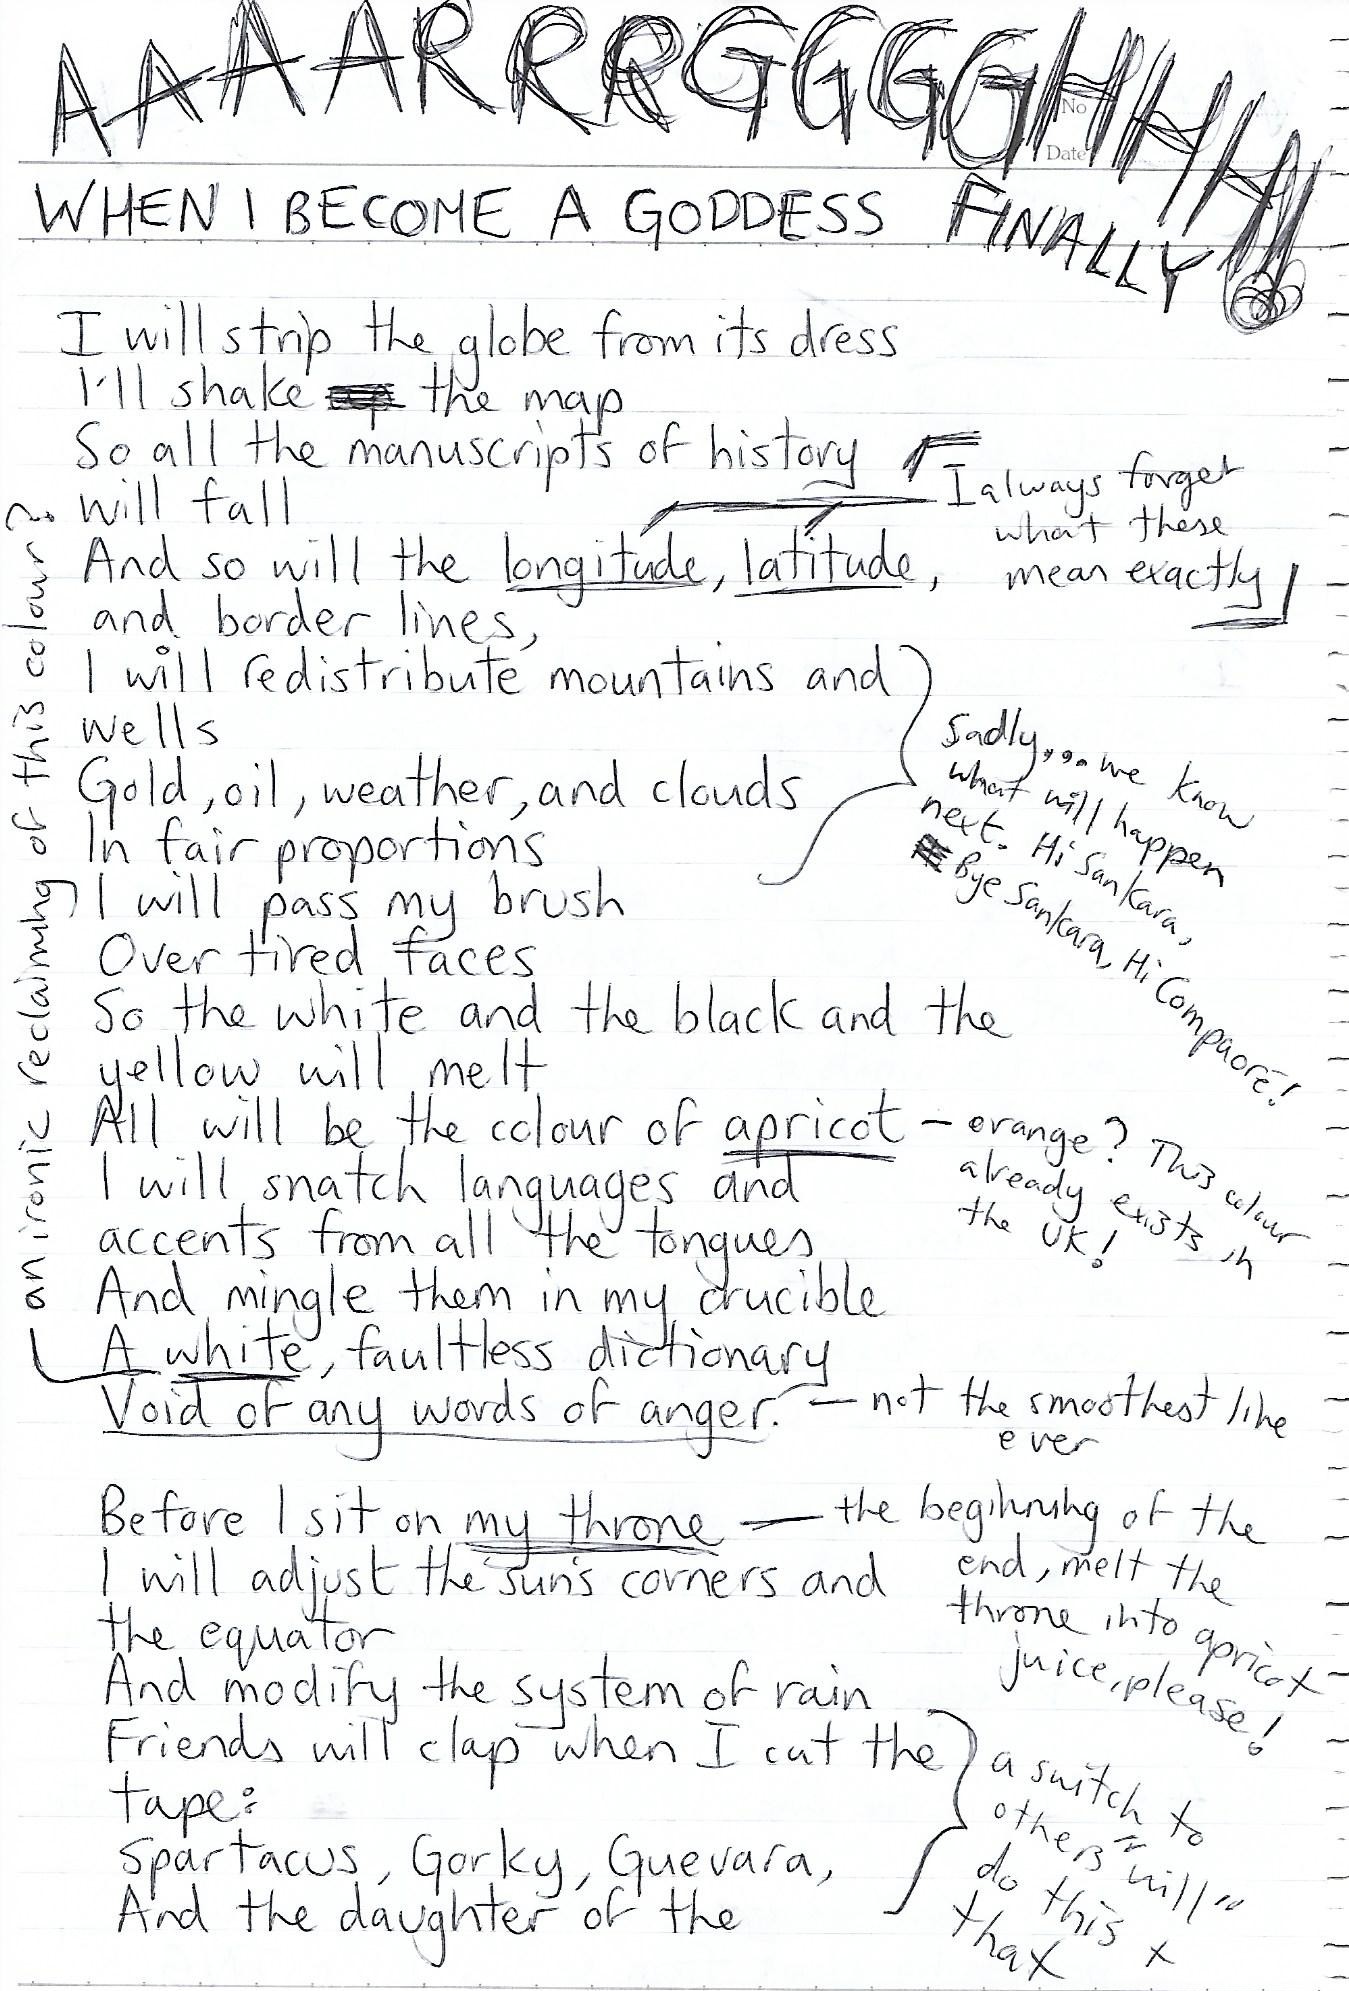 AAAARRRGGGGHHHH!!
No
Date
WHEN I BECOME A GODDESS FINALLY
I will strip the globe from its dress
I'll shake the map
So all the manuscripts of history
will fall
And so will the longitude, latitude,
and border lines,
I always forget
what these
mean exactly
I will redistribute mountains and
wells
Gold, oil, weather, and clouds
In fair proportions
Sadly... we know
what will happen
next. Hi Sankara,
Bye Sankara, Hi Compaoré!
I will pass my brush
Over tired faces
So the white and the black and the
yellow will melt
All will be the colour of apricot
– orange? This colour
already exists in
the UK!
I will snatch languages and
accents from all the tongues
And mingle them in my crucible
A white, faultless dictionary
an ironic reclaiming of this colour?
Void of any words of anger.
– not the smoothest line
ever
Before I sit on my throne
– the beginning of the
end, melt the
throne into apricot
juice, please!
I will adjust the sun's corners and
the equator
And modify the system of rain
Friends will clap when I cut the
tape:
Spartacus, Gorky, Guevara,
And the daughter of the
a switch to
others "will"
do this +
that